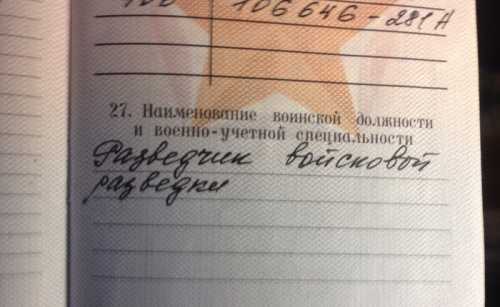 100 106646-281А
27. Наименование воинской должности
и военно-учетной специальности
Разведчик войсковой
разведки